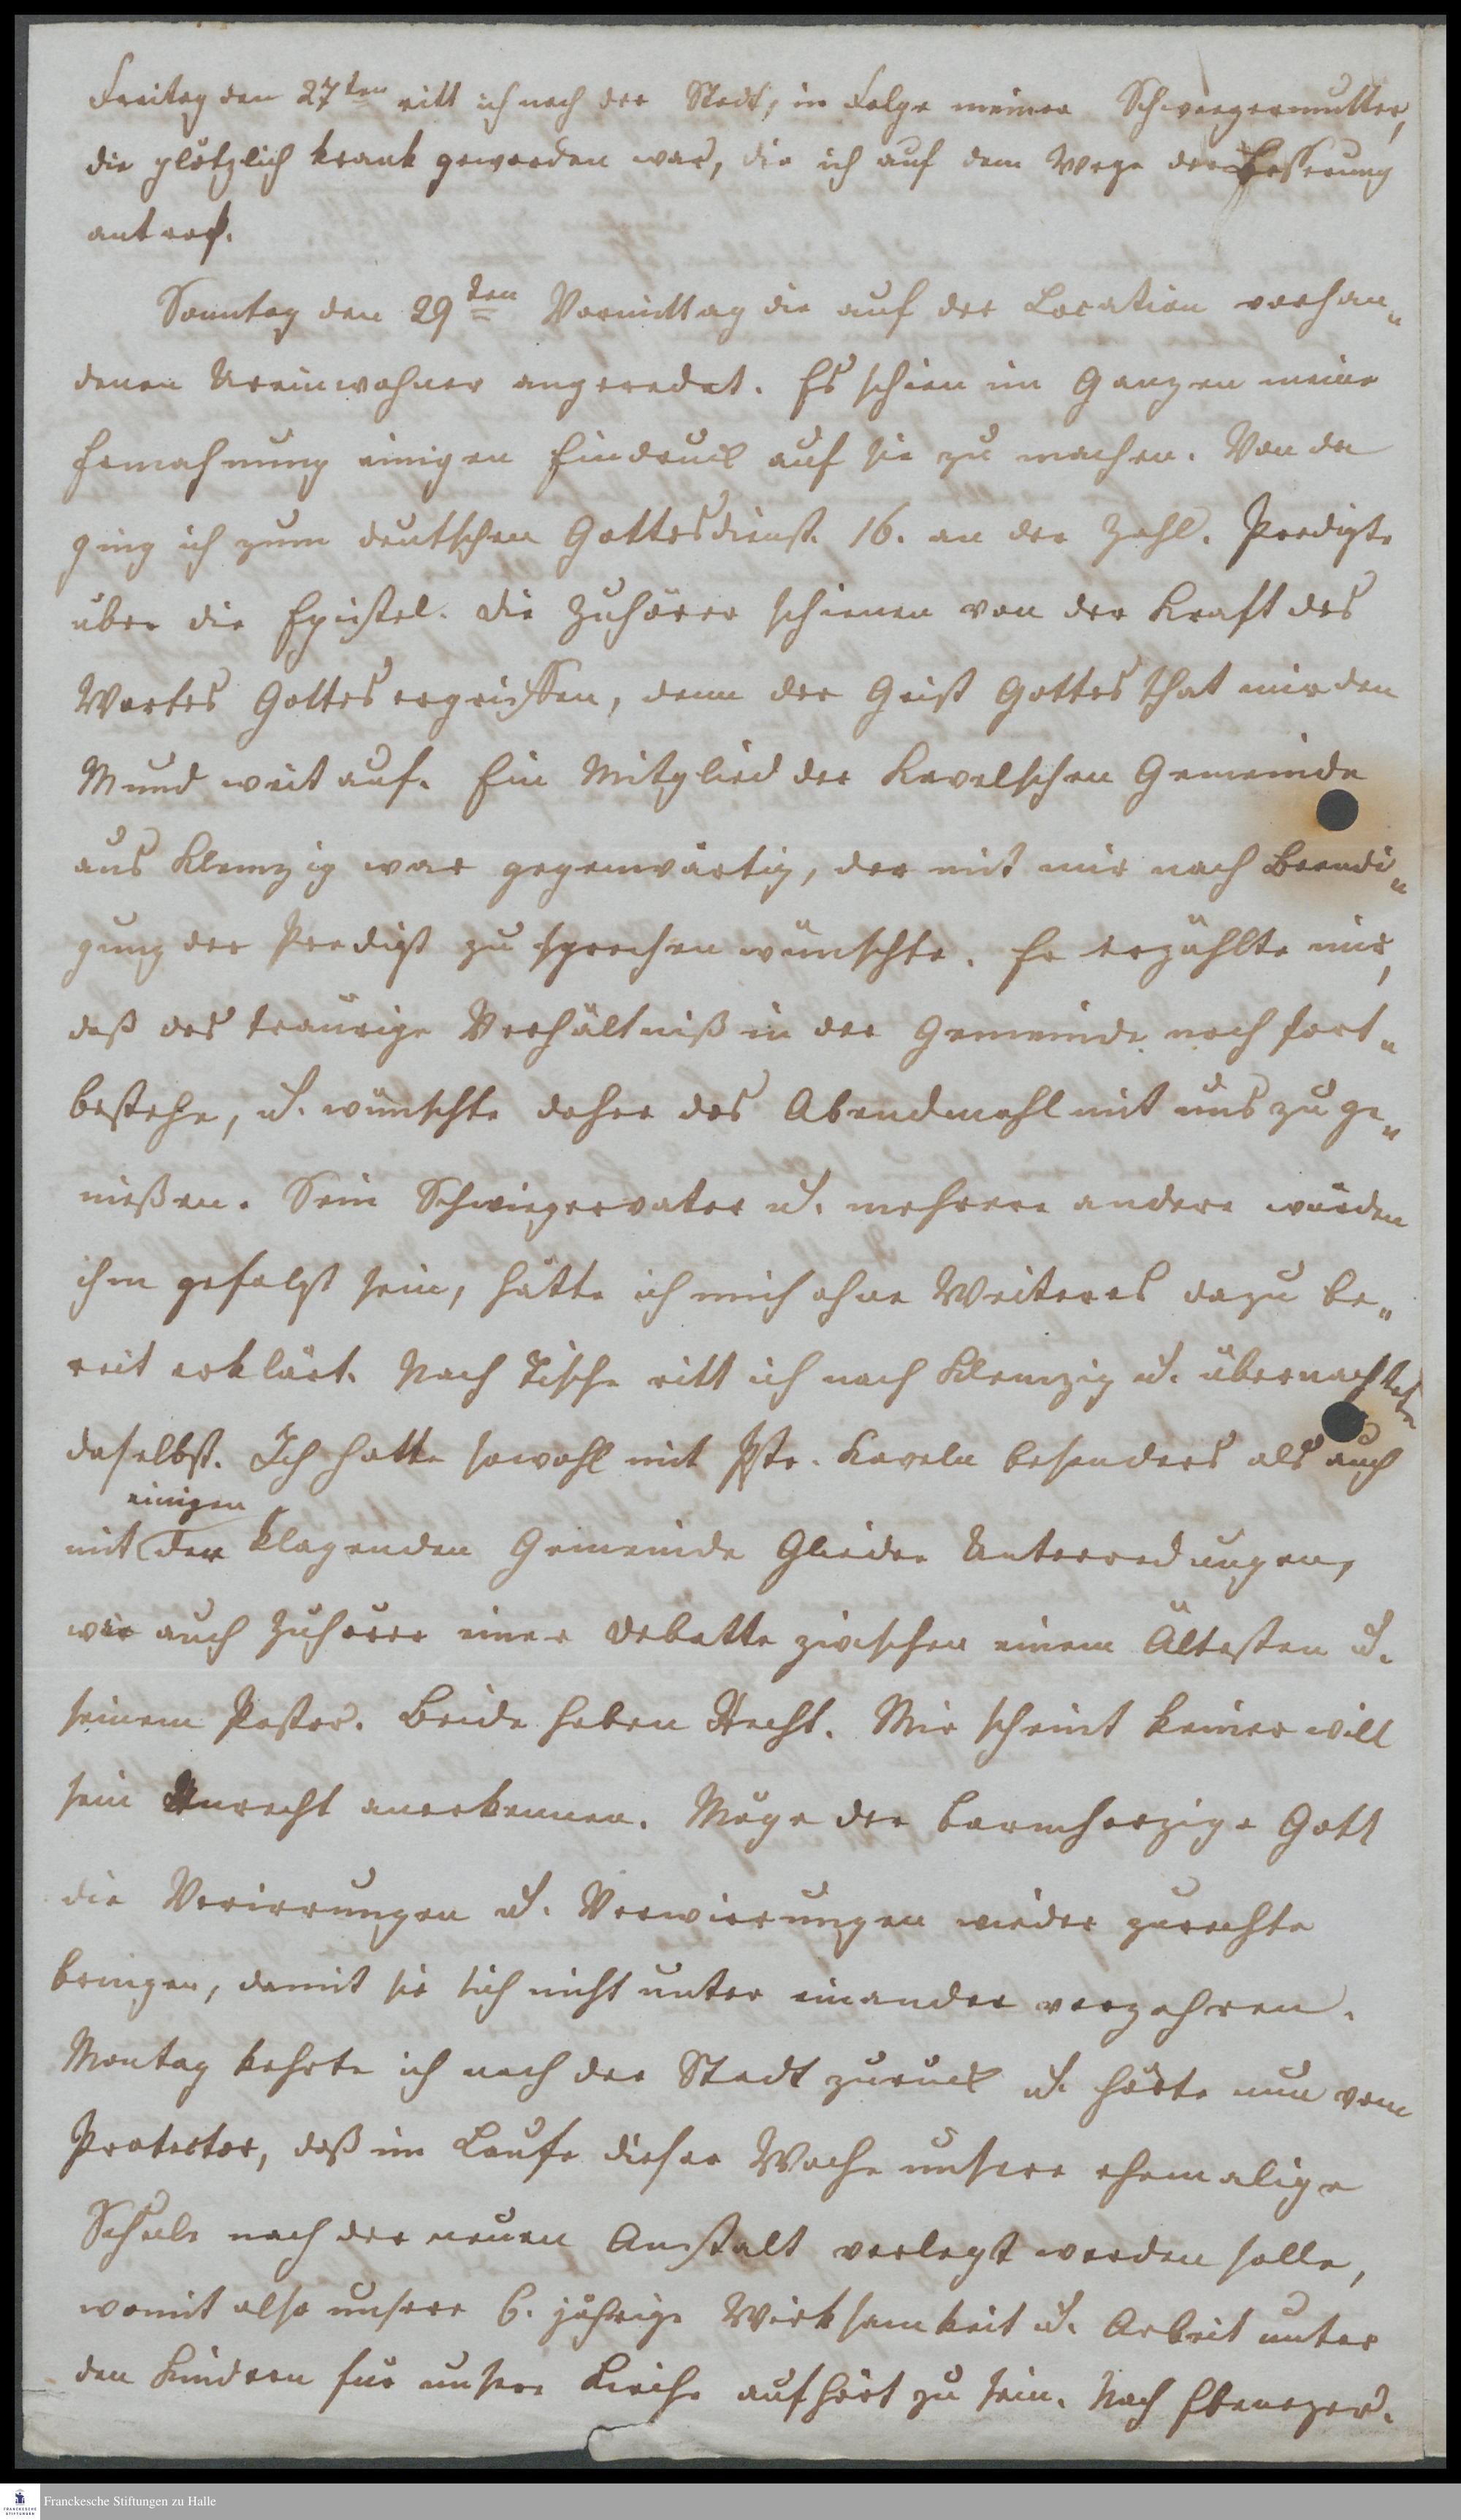 Freitag den 27ten ritt ich nach der Stadt, in Folge meiner Schwiegermutter,
die plötzlich krank geworden war, die ich auf dem Wege der Besserung
antraf.
Sonntag den 29ten Vormittag die auf der Location vorhan„
denen Ureinwohner angeredet. Es schien im Ganzen meine
Ermahnung einigen Eindruck auf sie zu machen. Von da
ging ich zum deutschen Gottesdienst. 16. an der Zahl. Predigte
über die Epistel. Die Zuhörer schienen von der Kraft des
Wortes Gottes ergriffen, denn der Geist Gottes that mir den
Mund weit auf. Ein Mitglied der Kavelschen Gemeinde
aus Klemzig war gegenwärtig, der mit mir nach Beendi„
gung der Predigt zu sprechen wünschte. Er erzählte mir,
daß das traurige Verhältniß in der Gemeinde noch fort„
bestehe, u. wünschte daher das Abendmahl mit uns zu ge„
nießen. Sein Schwiegervater u. mehrere andere würden
ihm gefolgt sein, hätte ich mich ohne Weiteres dazu be„
reit erklärt. Nach Tische ritt ich nach Klemzig u. übernachtete
daselbst. Ich hatte sowohl mit Pstr. Kaveln besonders als auch
einigen
mit der klagenden Gemeinde Glieder Unterredungen,
wie auch Zuhörer einer Debatte zwischen einem Ältesten u.
seinem Pastor. Beide haben Recht. Mir scheint keiner will
sein Unrecht anerkennen. Möge der barmherzige Gott
die Verirrungen u. Verwirrungen wieder zurechte
bringen, damit sie sich nicht unter einander verzehren.
Montag kehrte ich nach der Stadt zurück u. hörte nun vom
Protector, daß im Laufe dieser Woche unsere ehemalige
Schule nach der neuen Anstalt verlegt werden solle,
womit also unsere 6. jährige Wirksamkeit u. Arbeit unter
den Kindern für unsere Kirche aufhört zu sein. Nach Ebenezer.
Franckesche Stiftungen zu Halle